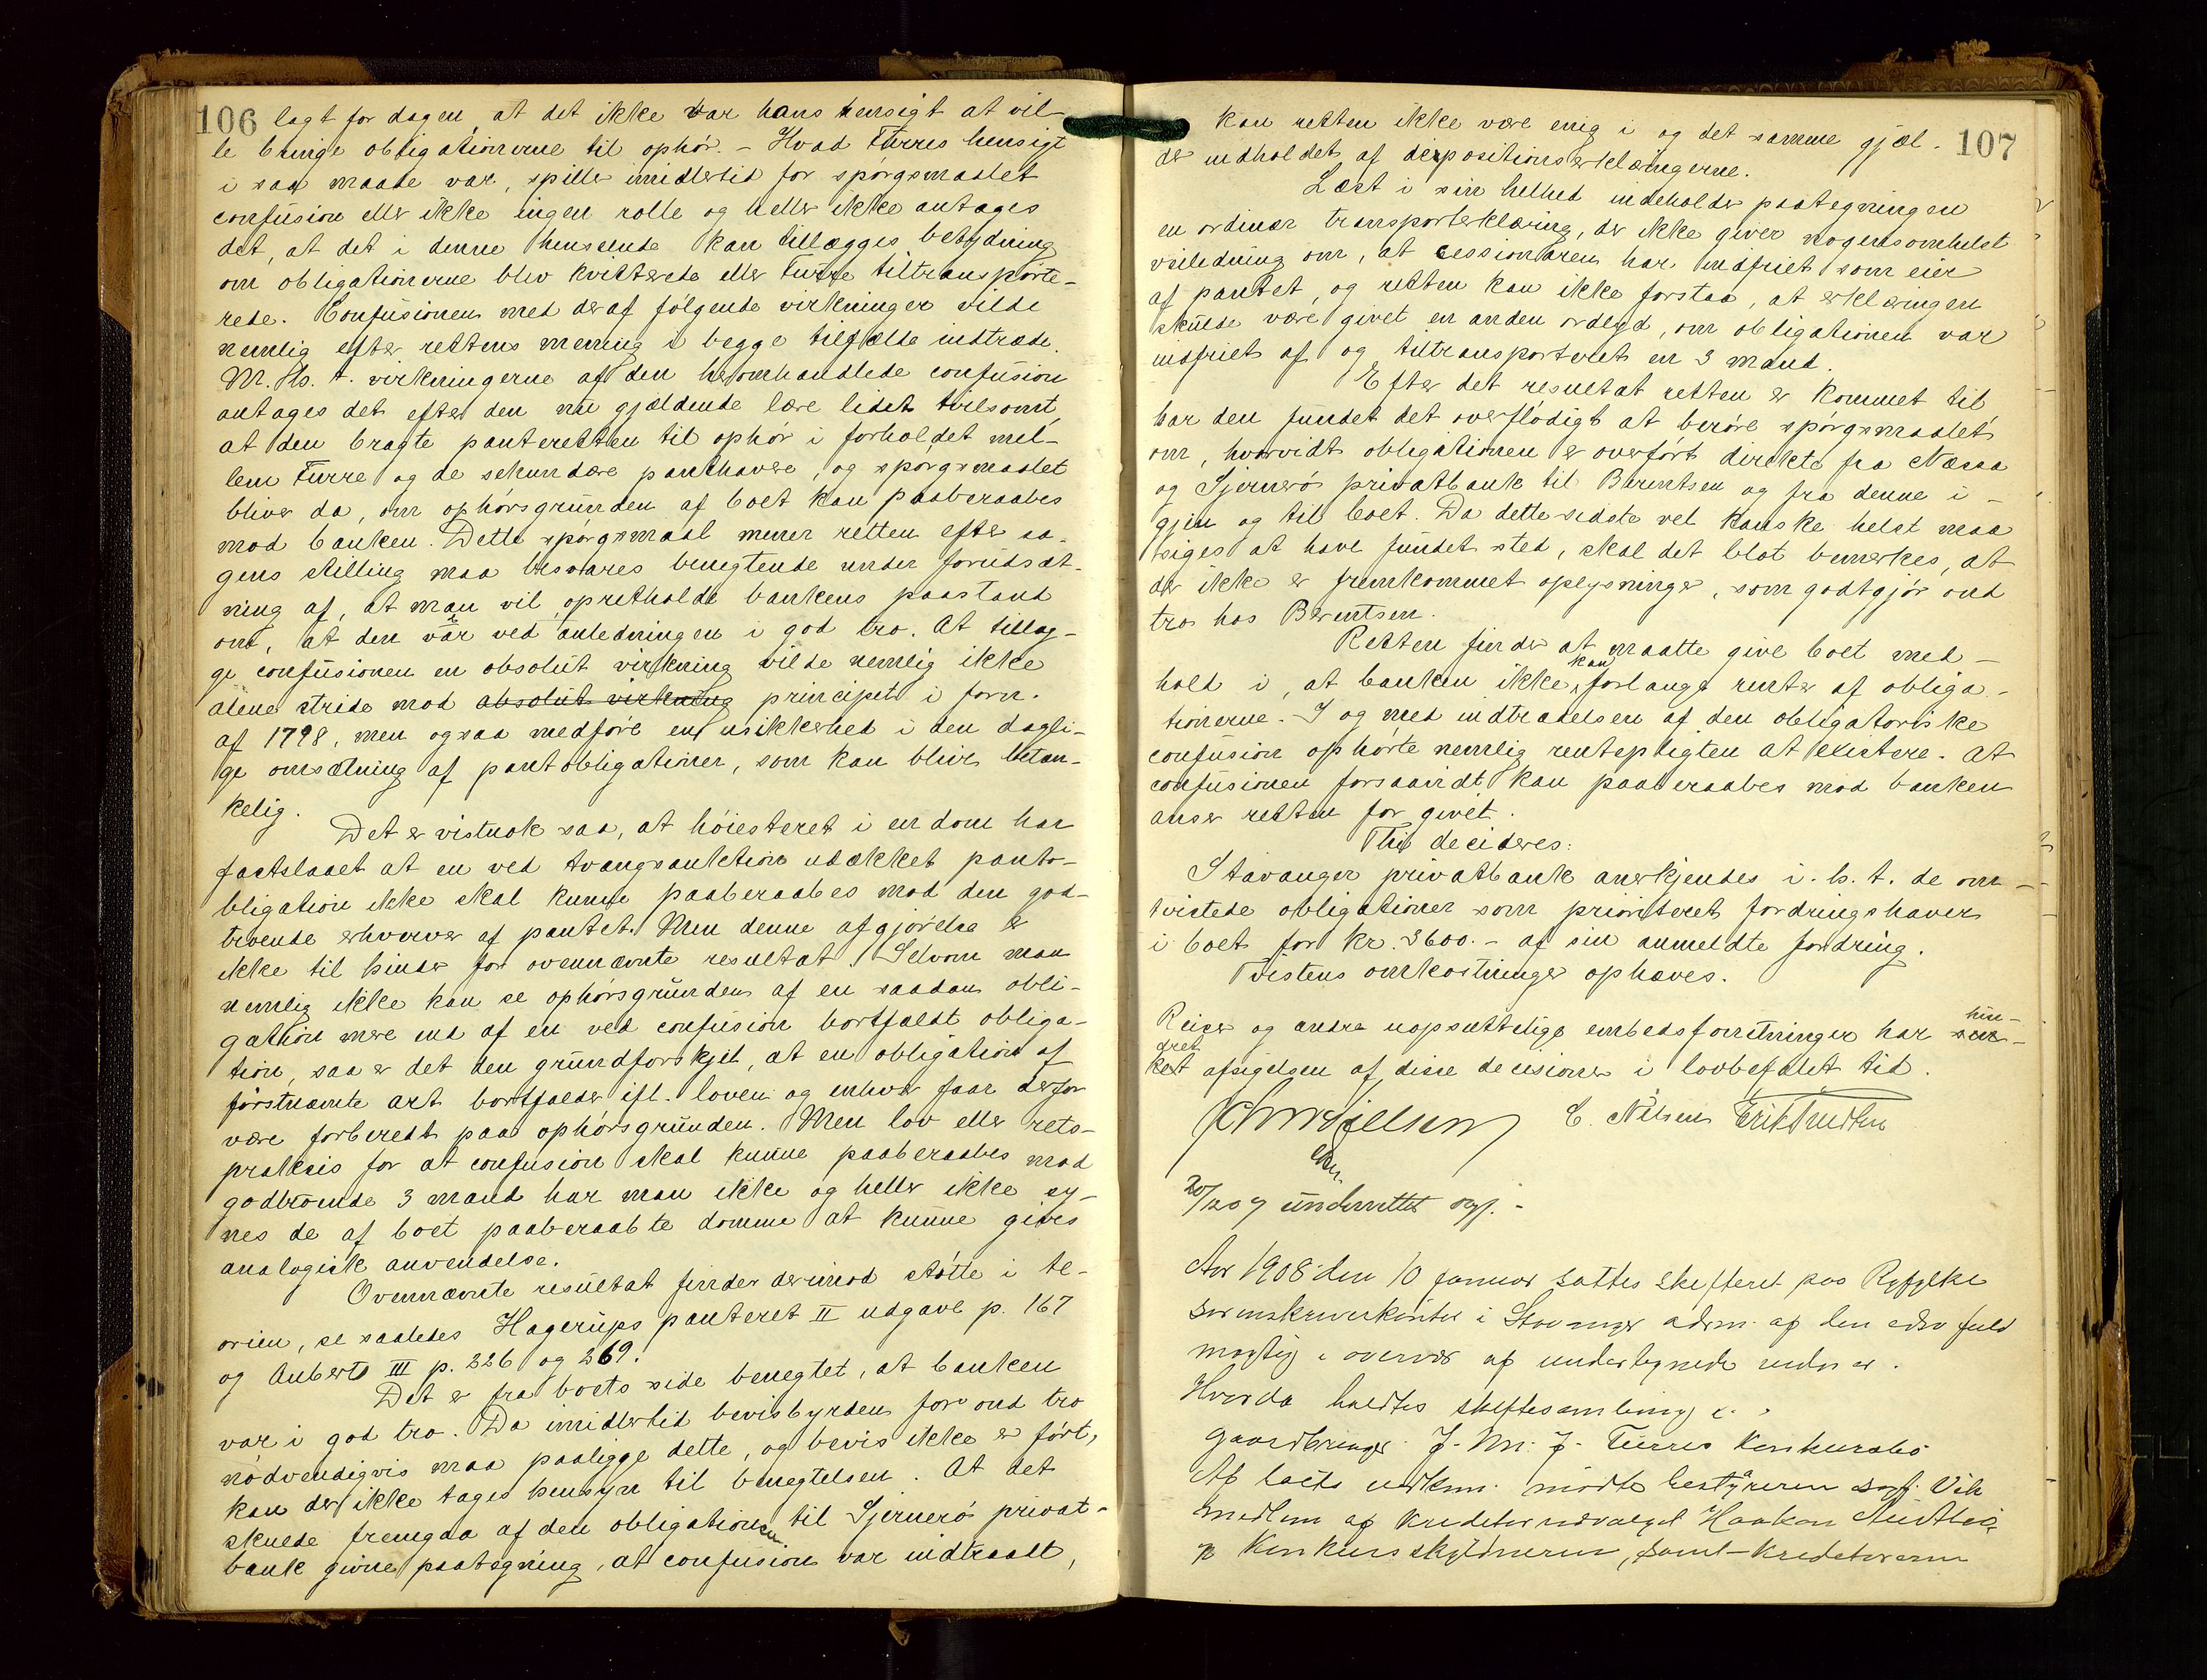 106 lagt for dagen, at det ikke var hans hensigt at vil-
le bringe obligationerne til ophør. - Hvad Türres hensigt
i saa maade var, spiller imidlertid for spørgsmaalet
confusion eller ikke ingen rolle og heller ikke antages
det, at det i denne henseende kan tillægges betydning
om obligationerne blev kvitterede eller Türre tiltransporte-
rede. Confusionen med deraf følgende virkninger vilde
nemlig efter rettens mening i begge tilfælde indtræde.
M. Hs. t. virkningerne af den heromhandlede confusion
antages det efter den nu gjældende lære lidet tvilsomt,
at den bragte panteretten til ophør i forholdet mel-
lem Türre og de sekundære panthavere, og spørgsmaalet
bliver da, om ophørsgrunden af boet kan paaberaabes
mod banken. Dette spørgsmaal mener retten efter sa-
gens stilling maa besvares benegtende under forudsæt-
ning af, at man vil opretholde bankens paastand
om, at den var ved anledningen i god tro. At tillæg-
ge confusionen en absolut virkning vilde nemlig ikke
alene stride mod absolut virkning principet i forn.
af 1798, men ogsaa medføre en usikkerhed i den dagli-
ge omsætning af pantobligationer, som kan blive betæn-
kelig.
Det er vistnok saa, at høiesteret i en dom har
fastslaaet at en ved tvangsauktion udækket panto-
bligation ikke skal kunne paaberaabes mod den god-
troende erhverver af pantet. Men denne afgjørelse er
ikke til hinder for ovennævnte resultat. Selvom man
nemlig ikke kan se ophørsgrunden af en saadan obli-
gation mere end af en ved confusion bortfaldt obliga-
tion, saa er det den grundforskjel, at en obligation af
førstnævnte art bortfalder ifl. loven og enhver faar derfor
være forberedt paa ophørsgrunden. Men lov eller rets-
praksis for at confusion skal kunne paaberaabes mod
godtroende 3 mand har man ikke og heller ikke sy-
nes de af boet paaberaabte domme at kunne gives
analogisk anvendelse.
Ovennævnte resultat finder derimod støtte i te-
orien, se saaledes Hagerups panteret II udgave p. 167
og Auberts III p. 226 og 269.
Det er fra boets side benegtet, at banken
var i god tro. Da imidlertid bevisbyrden for ond tro
nødvendigvis maa paalegge dette, og bevis ikke er ført,
kan der ikke tages hensyn til benegtelsen. At det
skulde fremgaa af den obligationen til Sjernerø privat-
bank givne paategning, at confusion var indtraadt,
107
kan retten ikke være enig i og det samme gjæl-
der indholdet af depositionserklæringerne.
Læst i sin helhed indeholder paategningen
en ordinær transporterklæring, der ikke giver nogensomhelst
veiledning om, at cessionaren har indfriet som eier
af pantet, og retten kan ikke forstaa, at erklæringen
skulde være givet en anden ordlyd, om obligationen var
indfriet af og tiltransporteret en 3 mand.
Efter det resultat retten er kommet til,
har den fundet det overflødigt at berøre spørgsmaalet
om, hvorvidt obligationen er overført direkte fra Næsaa
og Sjernerø privatbank til Berentsen og fra denne i-
gjen og til boet. Da dette sidste vel kanske helst maa
siges at have fundet sted, skal det blot bemerkes, at
der ikke er fremkommet oplysninger, som godtgjør ond
tro hos Berentsen.
Retten finder at maatte give boet med-
hold i, at banken ikke kan forlange renter af obliga-
tionerne. I og med indtrædelsen af den obligatoriske
confusion ophørte nemlig rentepligten at existere. At
confusionen forsaavidt kan paaberaabes mod banken
anser retten for givet.
Thi decideres:
Stavanger privatbank anerkjendes i. h. t. de om-
tvistede obligationer som prioriteret fordringshaver
i boet for kr. 3600.- af sin anmeldte fordring.
Tvistens omkostninger ophæves.
Reiser og andre uopsættelige embedsforretninger har hin-
dret afsigelsen af disse decisioner i lovbefalet tid.
C. Nilsen Erik Knudsen
20/12 07 underrettet sagf. -
Aar 1908 den 10 januar sattes skifteret paa Ryfylke
sorenskriverkontor i Stavanger adm. af den edsv. fuld
mægtig i overvær af undertegnede vidner.
Hvorda holdtes skiftesamling i
gaardbruger J. M. J. Türres konkursbo
Af boets vedkom. mødte bestyreren sagf. Vik
medlem af kreditorudvalget Haakon
og konkursskyldneren, samt kreditorerne